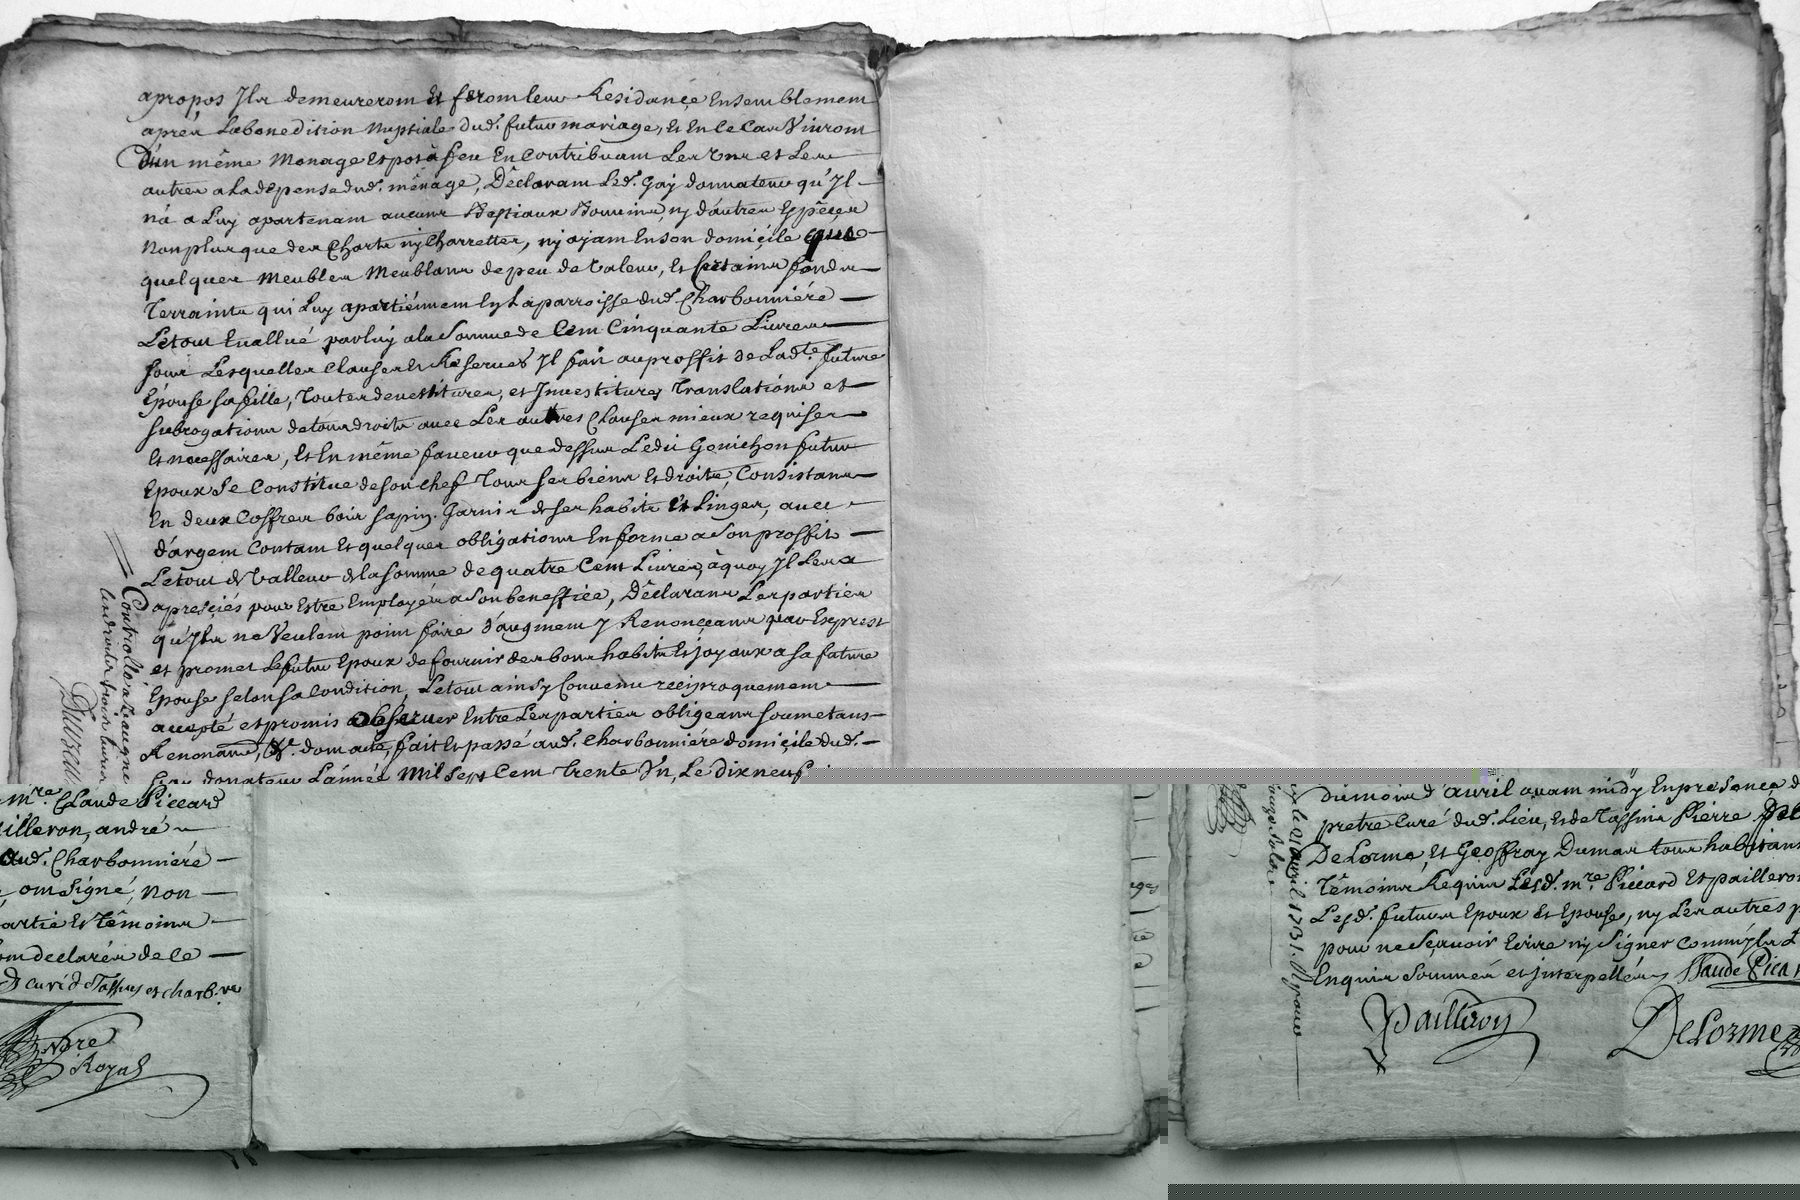 apropos Jls demeureront Et feront leur Residançe Ensemblement
apres Labenediction Nuptiale dud. futur mariage, Et En Ce Cas Viuront
D'un même Monage Et pot à feu En Contribuant Les Uns et Les
autres a La depense dud. ménage, Déclarant Led. Gay donnateur qu'Jl
n'a a Luy apartenant aucuns Bestiaux Bouuins, ny d'autres Espèces
Nonplus que des Charts ny Charrettes, ny ayant En son domiçile que
quelques Meubles Meublans de peu de Valeur, Et Certains fonds
Terraints qui Luy apartiénnent En La parroisse dud. Charbonniére
Le tout Euallué par luy a la Somme de Cent Cinquante Liures
sous Lesquelles Clauses Et Reserues Jl fait au proffit de Lad.te future
Epouse sa fille, Toutes deuestitures, et Jnuestitures Translations et
subrogations de tous droits auec Les autres Clauses mieux requises
Et necessaires, Et En même faueur que dessus Ledit Gonichon futur
Epoux Se Constitue de son chef Tous ses biens Et droits, Consistans
En deux Coffres bois sapin. Garnis de ses habits Et Linges, auec
d'argent Contant Et quelques obligations En forme a Son proffit
Le tout de Valleur de la somme de quatre Cent Liures, à quoy Jl Les a
apreçiés pour Estre Employés a Son beneffice, Déclarans Les parties
qu'Jls ne Veulent point faire d'augment y Renonçeans par Exprest
et promet Le futur Epoux de fournir des bons habits Et joyaux a sa future
Epouse selon sa Condition, Le tout ainsy Conuenu reciproquement
accepté et promis observer Entre Les parties obligeans soumetans
Renonans, &c. dont acte, fait Et passé aud. Charbonniére domiçile dud.
Gay donateur L'année Mil Sept Cent Trente Un, Le dix neuf
Controllé a Laugne
Duzeau
mre. Claude Piccard
ailleron, andré
aud. Charbonniéré
, ont Signé, Non
artie Et Témoins
ont declarés de Ce
curé d Tassins et charb.re
Nore
Royal
du mois d'auril auant midy En presence d
pretre Curé dud. Lieu, Et de Tassins Pierre
DeLorme, Et Geoffray Dumas tous habitans
Témoins Requis Lesd. mre Piccard Et pailleron
Lesd. futurs Epoux Et Epouse, ny Les autres p
pour ne Sçauoir Ecrire ny Signer Comm'jls
Enquis Sommés et jnterpellés
Claude Pica
Le 21 auril 1731.
Pailleron
DeLorme